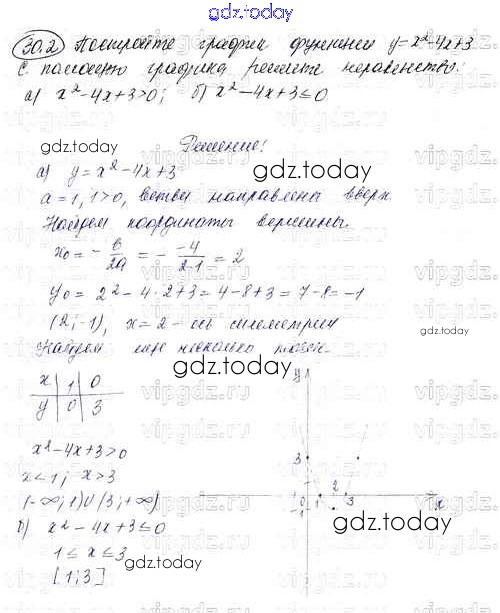 gdz.today
30.2 Постройте график функции y=x²-4x+3
С помощью графика решите неравенство:
а) x²-4x+3>0; б) x²-4x+3≤0
gdz.today
Решение:
gdz.today
а) y=x²-4x+3
a=1, 1>0, ветви направлены вверх
Найдем координаты вершины.
x₀ = -b/2a = - -4/2·1 = 2
gdz.today
y₀ = 2² - 4·2+3 = 4-8+3 = 7-8 = -1
(2;-1), x=2 - ось симметрии
gdz.today
Найдем еще несколько точек.
gdz.today
x | 1 | 0
y | 0 | 3
y
x²-4x+3>0
3
x<1; x>3
2
(-∞;1)∪(3;+∞)
0 1 3 x
-1
б) x²-4x+3≤0
gdz.today
1≤x≤3
gdz.today
[1;3]